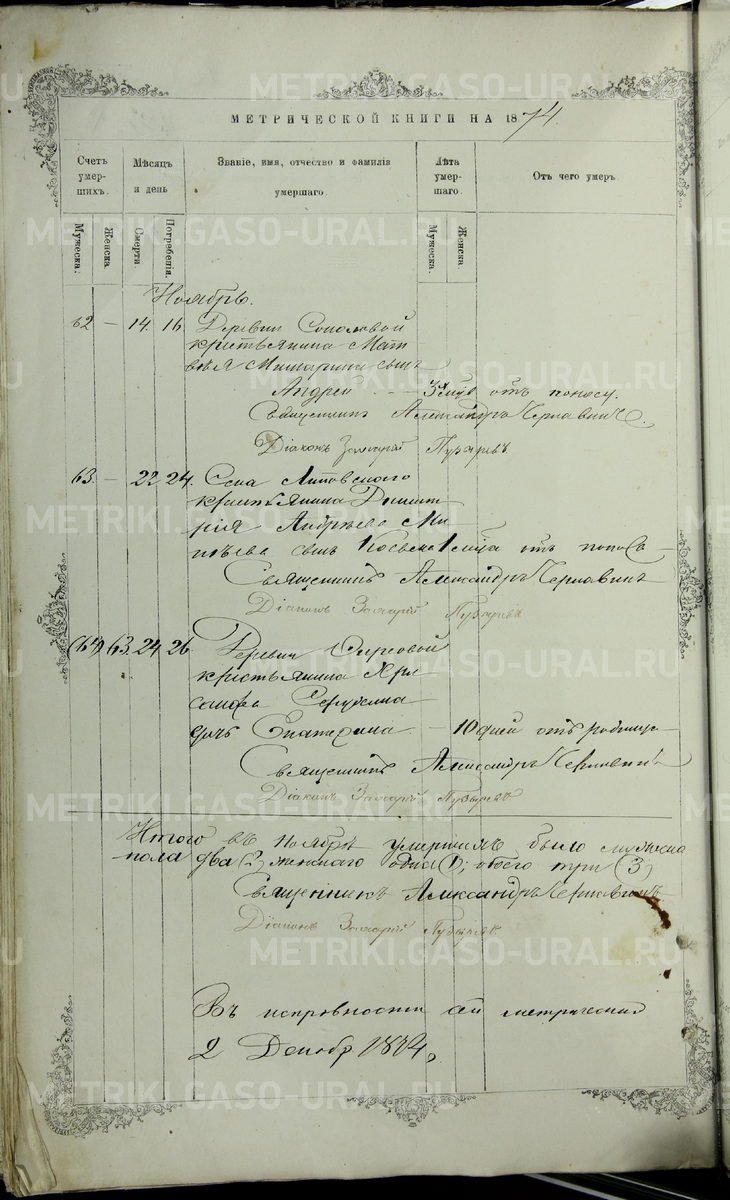 METRIKI.GASO-URAL.RU
МЕТРИЧЕСКОЙ КНИГИ НА 1874.
Счетъ умершихъ.
Мѣсяцъ и день
Званіе, имя, отчество и фамилія умершаго.
Лѣта умершаго.
Отъ чего умеръ.
Мужеска.
Женска.
Смерти.
Погребенія.
Мужеска.
Женска.
Ноябрь.
62 — 14. 16. Деревни Соколовой
крестьянина Мат
вѣя сынъ
Андрей — 3 отъ поносу.
Священникъ Александръ Чернавинъ.
Діаконъ Захарій Пузыревъ
63. — 22 24. Села Липовского
крестьянина Димит
рія Андрѣева Ми
нѣева сынъ 1 отъ поноса
Священникъ Александръ Чернавинъ
Діаконъ Захарій Пузыревъ
63. 24. 26 Деревни
крестьянина Хри
санфа
дочь Екатерина — 10 дней отъ родимца
Священникъ Александръ Чернавинъ
Діаконъ Захарій Пузыревъ
Итого въ Ноябрѣ умершихъ было мужеска
пола два (2) женскаго одна (1); обоего три (3)
Священникъ Александръ Чернавинъ
Діаконъ Захарій Пузыревъ
Въ
2 Декабр 1874,